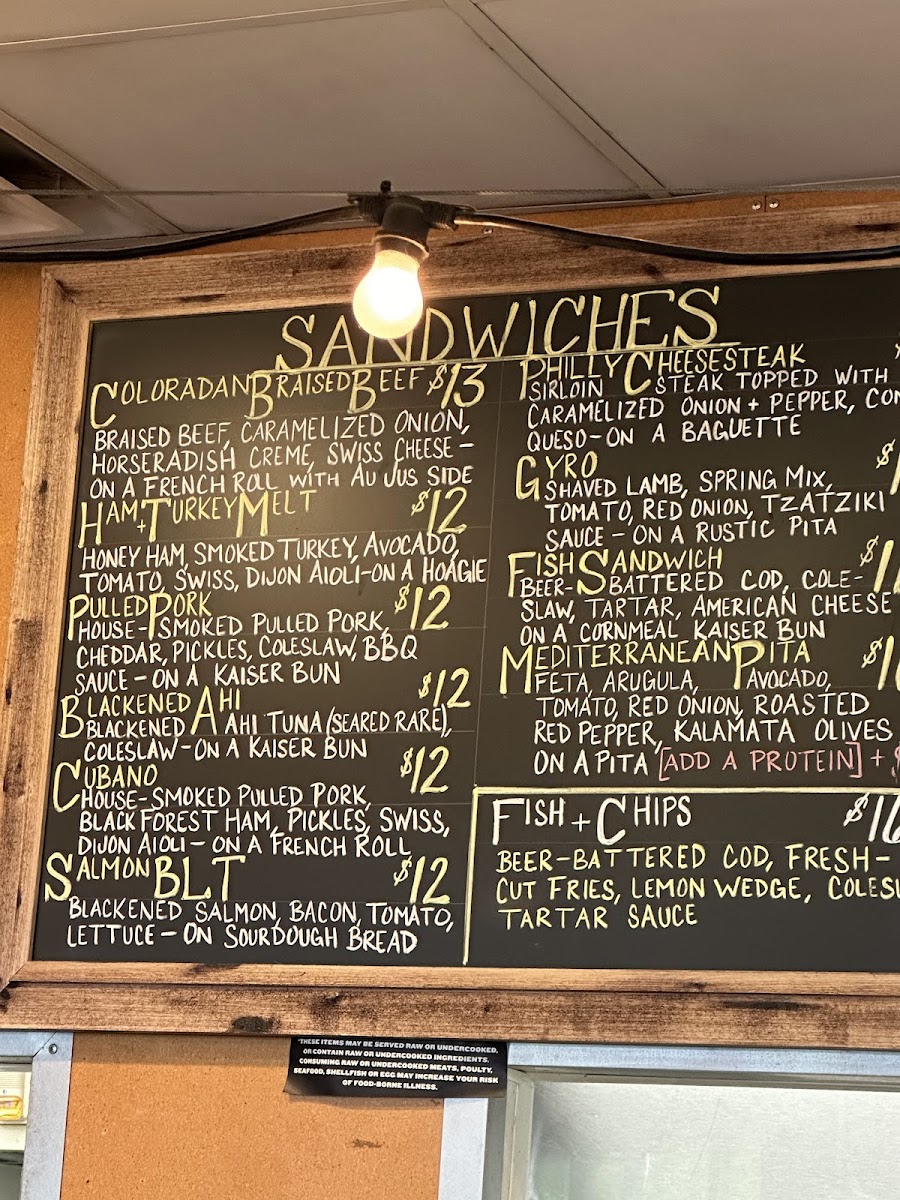 SANDWICHES
COLORADAN BRAISED BEEF $13
BRAISED BEEF, CARAMELIZED ONION,
HORSERADISH CREME, SWISS CHEESE -
ON A FRENCH ROLL WITH AU JUS SIDE
HAM + TURKEY MELT $12
HONEY HAM, SMOKED TURKEY, AVOCADO,
TOMATO, SWISS, DIJON AIOLI - ON A HOAGIE
PULLED PORK $12
HOUSE-SMOKED PULLED PORK,
CHEDDAR, PICKLES, COLESLAW, BBQ
SAUCE - ON A KAISER BUN
BLACKENED AHI $12
BLACKENED AHI TUNA (SEARED RARE),
COLESLAW - ON A KAISER BUN
CUBANO $12
HOUSE-SMOKED PULLED PORK,
BLACK FOREST HAM, PICKLES, SWISS,
DIJON AIOLI - ON A FRENCH ROLL
SALMON BLT $12
BLACKENED SALMON, BACON, TOMATO,
LETTUCE - ON SOURDOUGH BREAD
PHILLY CHEESESTEAK
SIRLOIN STEAK TOPPED WITH
CARAMELIZED ONION + PEPPER,
QUESO - ON A BAGUETTE
GYRO
SHAVED LAMB, SPRING MIX,
TOMATO, RED ONION, TZATZIKI
SAUCE - ON A RUSTIC PITA
FISH SANDWICH
BEER-BATTERED COD, COLE-
SLAW, TARTAR, AMERICAN CHEESE
ON A CORNMEAL KAISER BUN
MEDITERRANEAN PITA
FETA, ARUGULA, AVOCADO,
TOMATO, RED ONION, ROASTED
RED PEPPER, KALAMATA OLIVES
ON A PITA [ADD A PROTEIN] +
FISH + CHIPS
BEER-BATTERED COD, FRESH-
CUT FRIES, LEMON WEDGE,
TARTAR SAUCE
*THESE ITEMS MAY BE SERVED RAW OR UNDERCOOKED,
OR CONTAIN RAW OR UNDERCOOKED INGREDIENTS.
CONSUMING RAW OR UNDERCOOKED MEATS, POULTY,
SEAFOOD, SHELLFISH OR EGG MAY INCREASE YOUR RISK
OF FOOD-BORNE ILLNESS.